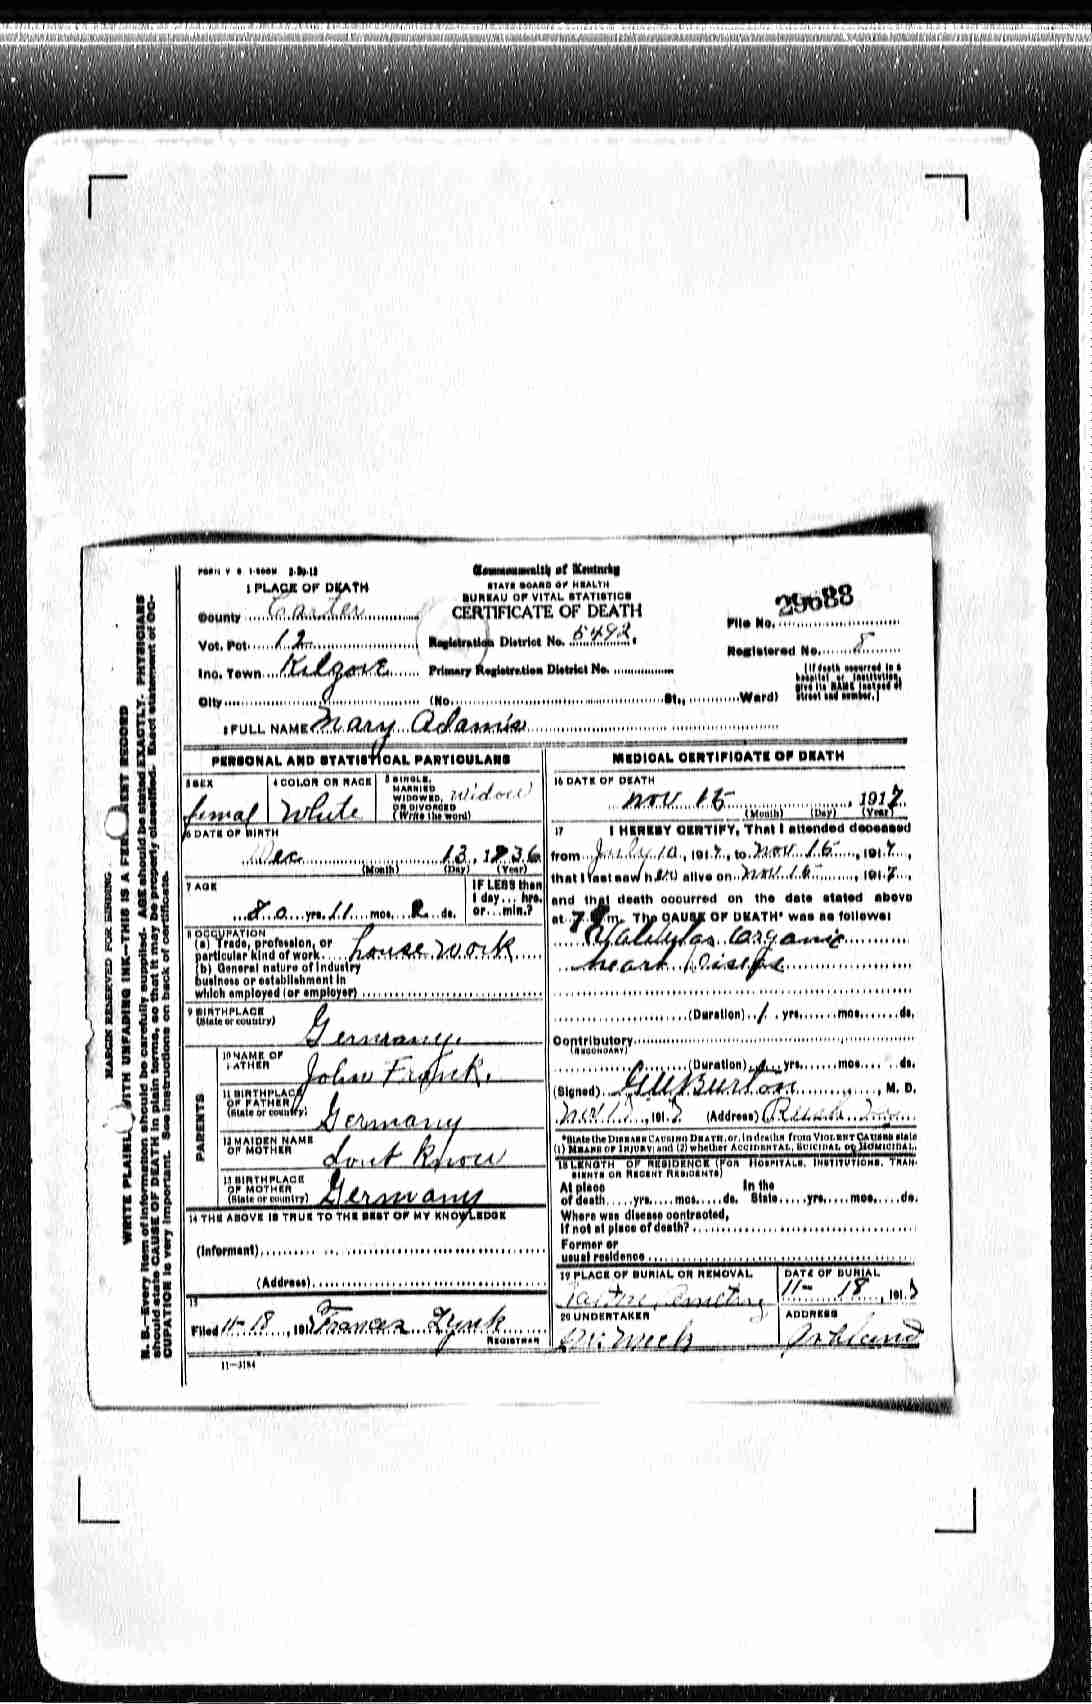 FORM V S 1-500M 3-20-12
Commonwealth of Kentucky
STATE BOARD OF HEALTH
BUREAU OF VITAL STATISTICS
CERTIFICATE OF DEATH
1 PLACE OF DEATH
County Carter
Vot. Pct. 12
Inc. Town Kilgore
City (No. St., Ward)
Registration District No. 5492
Primary Registration District No.
File No. 29688
Registered No. 8
[If death occurred in a
hospital or institution,
give its NAME instead of
street and number.]
2 FULL NAME Mary Adams
PERSONAL AND STATISTICAL PARTICULARS
3 SEX
femal
4 COLOR OR RACE
White
5 SINGLE,
MARRIED
WIDOWED,
OR DIVORCED
(Write the word)
Widow
6 DATE OF BIRTH
Dec 13, 1836
(Month) (Day) (Year)
7 AGE
80 yrs. 11 mos. 2 ds.
IF LESS than
1 day... hrs.
or... min.?
8 OCCUPATION
(a) Trade, profession, or
particular kind of work house work
(b) General nature of industry
business or establishment in
which employed (or employer)
9 BIRTHPLACE
(State or country)
Germany.
PARENTS
10 NAME OF
FATHER
John
11 BIRTHPLACE
OF FATHER
(State or country)
Germany
12 MAIDEN NAME
OF MOTHER
Dont Know
13 BIRTHPLACE
OF MOTHER
(State or country)
Germany
14 THE ABOVE IS TRUE TO THE BEST OF MY KNOWLEDGE
(Informant)
(Address)
15
Filed 11-18, 191 Frances
REGISTRAR
11-3184
MEDICAL CERTIFICATE OF DEATH
16 DATE OF DEATH
Nov 15, 1917
(Month) (Day) (Year)
17 I HEREBY CERTIFY, That I attended deceased
from July 10, 1917, to Nov 15, 1917,
that I last saw her alive on Nov 15, 1917,
and that death occurred on the date stated above
at 7 m. The CAUSE OF DEATH* was as follows:
Organic
heart
(Duration) 1 yrs. mos. ds.
Contributory
(SECONDARY)
(Duration) yrs. mos. ds.
(Signed) Burton, M. D.
Nov, 1917 (Address) Rush Ky
*State the DISEASE CAUSING DEATH, or, in deaths from VIOLENT CAUSES state
(1) MEANS OF INJURY; and (2) whether ACCIDENTAL, SUICIDAL or HOMICIDAL.
18 LENGTH OF RESIDENCE (FOR HOSPITALS, INSTITUTIONS, TRAN-
SIENTS OR RECENT RESIDENTS)
At place In the
of death yrs. mos. ds. State yrs. mos. ds.
Where was disease contracted,
if not at place of death?
Former or
usual residence
19 PLACE OF BURIAL OR REMOVAL
DATE OF BURIAL
11- 18, 191
20 UNDERTAKER
ADDRESS
Ashland
MARGIN RESERVED FOR BINDING
WRITE PLAINLY WITH UNFADING INK—THIS IS A PERMANENT RECORD
N. B.—Every item of information should be carefully supplied. AGE should be stated EXACTLY. PHYSICIANS
should state CAUSE OF DEATH in plain terms, so that it may be properly classified. Exact statement of OC-
CUPATION is very important. See instructions on back of certificate.